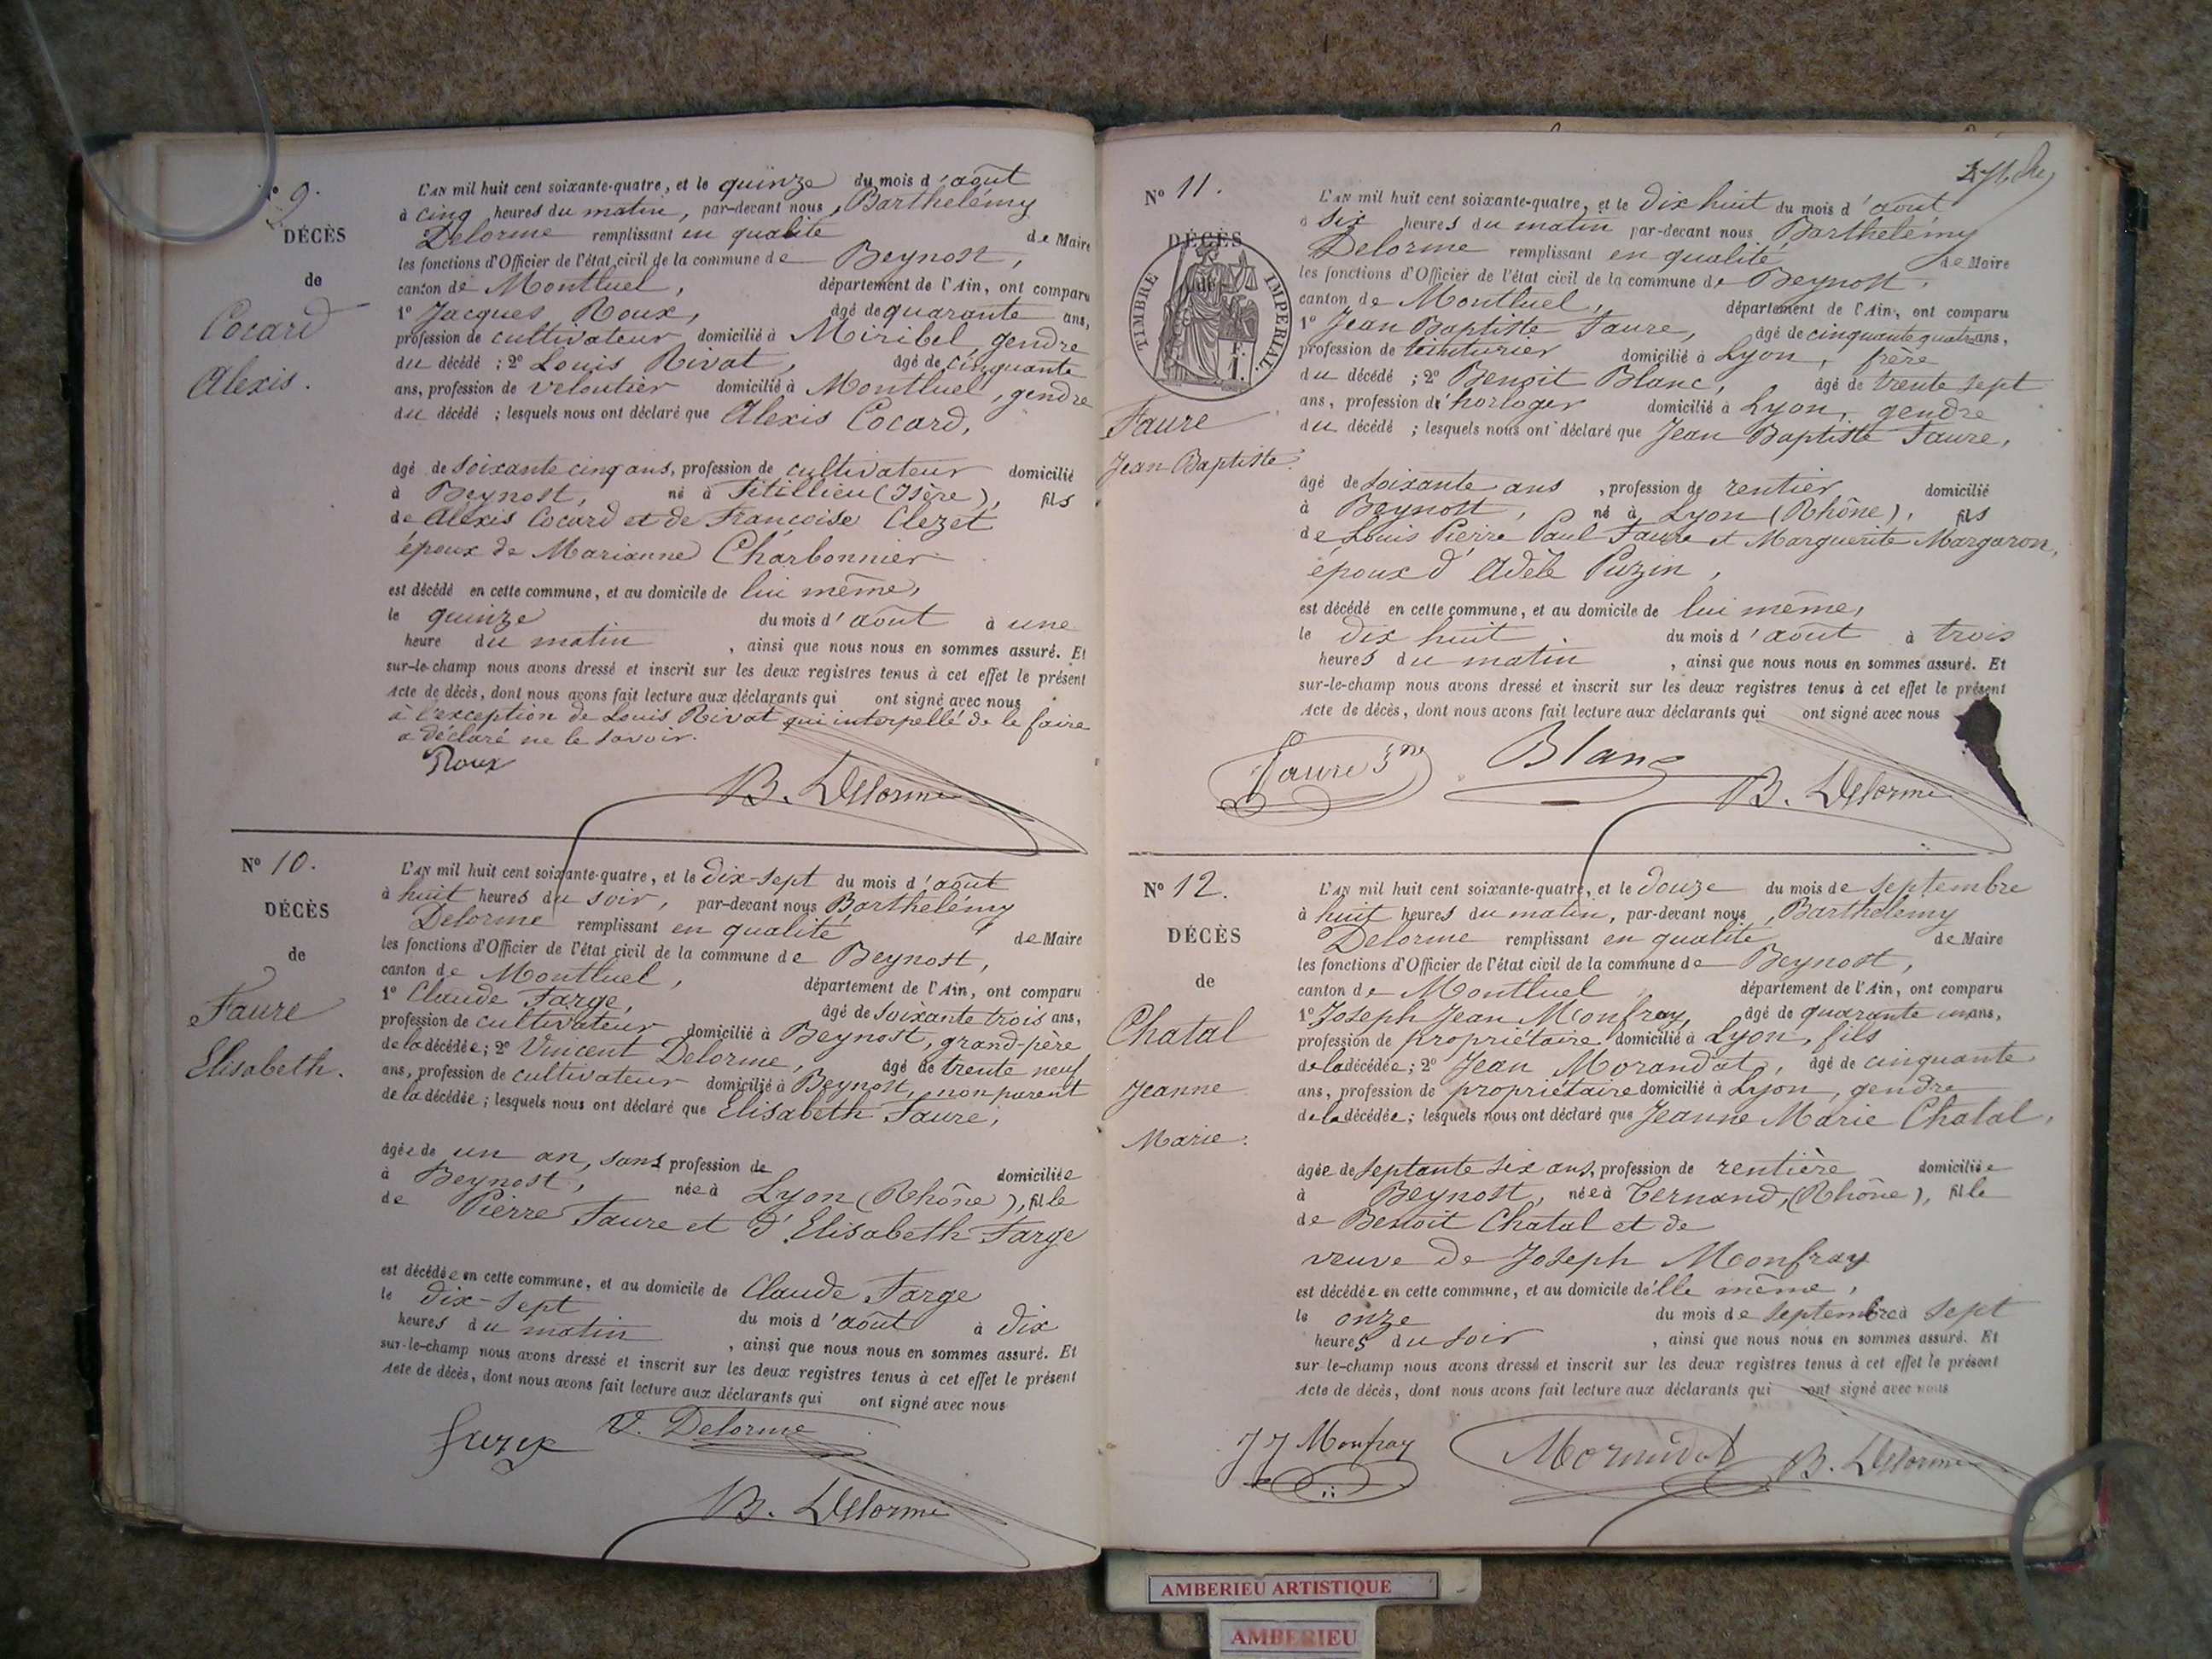 N° 9.
DÉCÈS
de
Cocard
Alexis.
L'AN mil huit cent soixante-quatre, et le quinze du mois d'août
à cinq heures du matin, par-devant nous, Barthelémy
Delorme remplissant en qualité de Maire
les fonctions d'Officier de l'état civil de la commune de Beynost,
canton de Montluel, département de l'Ain, ont comparu
1° Jacques Roux, âgé de quarante ans,
profession de cultivateur domicilié à Miribel, gendre
du décédé ; 2° Louis Rivat, âgé de cinquante
ans, profession de veloutier domicilié à Montluel, gendre
du décédé ; lesquels nous ont déclaré que Alexis Cocard,
âgé de soixante cinq ans, profession de cultivateur domicilié
à Beynost, né à Fitillieu (Isère), fils
de Alexis Cocard et de Françoise Clezet
époux de Marianne Charbonnier
est décédé en cette commune, et au domicile de lui même,
le quinze du mois d'août à une
heure du matin, ainsi que nous nous en sommes assuré. Et
sur-le-champ nous avons dressé et inscrit sur les deux registres tenus à cet effet le présent
Acte de décès, dont nous avons fait lecture aux déclarants qui ont signé avec nous
à l'exception de Louis Rivat qui interpellé de le faire
a déclaré ne le savoir.
Roux
B. Delorme
N° 10.
DÉCÈS
de
Faure
Elisabeth.
L'AN mil huit cent soixante-quatre, et le dix-sept du mois d'août
à huit heures du soir, par-devant nous Barthelémy
Delorme remplissant en qualité de Maire
les fonctions d'Officier de l'état civil de la commune de Beynost,
canton de Montluel, département de l'Ain, ont comparu
1° Claude Farge, âgé de soixante trois ans,
profession de cultivateur domicilié à Beynost, grand-père
de la décédée ; 2° Vincent Delorme, âgé de trente neuf
ans, profession de cultivateur domicilié à Beynost, non parent
de la décédée ; lesquels nous ont déclaré que Elisabeth Faure,
âgée de un an, sans profession de domiciliée
à Beynost, née à Lyon (Rhône), fille
de Pierre Faure et d'Elisabeth Farge
est décédée en cette commune, et au domicile de Claude Farge
le dix-sept du mois d'août à dix
heures du matin, ainsi que nous nous en sommes assuré. Et
sur-le-champ nous avons dressé et inscrit sur les deux registres tenus à cet effet le présent
Acte de décès, dont nous avons fait lecture aux déclarants qui ont signé avec nous
V. Delorme
B. Delorme
N° 11.
DÉCÈS
de
TIMBRE IMPERIAL.
F.
1.
Faure
Jean Baptiste.
L'AN mil huit cent soixante-quatre, et le dix huit du mois d'août
à six heures du matin par-devant nous Barthelémy
Delorme remplissant en qualité de Maire
les fonctions d'Officier de l'état civil de la commune de Beynost,
canton de Montluel, département de l'Ain, ont comparu
1° Jean Baptiste Faure, âgé de cinquante quatre ans,
profession de teinturier domicilié à Lyon, frère
du décédé ; 2° Benoit Blanc, âgé de trente sept
ans, profession d'horloger domicilié à Lyon, gendre
du décédé ; lesquels nous ont déclaré que Jean Baptiste Faure,
âgé de soixante ans, profession de rentier domicilié
à Beynost, né à Lyon (Rhône), fils
de Louis Pierre Paul Faure et Marguerite Margaron,
époux d'Adèle Puzin,
est décédé en cette commune, et au domicile de lui même,
le dix huit du mois d'août à trois
heures du matin, ainsi que nous nous en sommes assuré. Et
sur-le-champ nous avons dressé et inscrit sur les deux registres tenus à cet effet le présent
Acte de décès, dont nous avons fait lecture aux déclarants qui ont signé avec nous
Faure
Blanc
B. Delorme
N° 12.
DÉCÈS
de
Chatal
Jeanne
Marie.
L'AN mil huit cent soixante-quatre, et le douze du mois de septembre
à huit heures du matin, par-devant nous, Barthélemy
Delorme remplissant en qualité de Maire
les fonctions d'Officier de l'état civil de la commune de Beynost,
canton de Montluel département de l'Ain, ont comparu
1° Joseph Jean Monfray, âgé de quarante un ans,
profession de propriétaire domicilié à Lyon, fils
de la décédée ; 2° Jean Morandat, âgé de cinquante
ans, profession de propriétaire domicilié à Lyon, gendre
de la décédée ; lesquels nous ont déclaré que Jeanne Marie Chatal,
âgée de septante six ans, profession de rentière domiciliée
à Beynost, née à Ternand, (Rhône), fille
de Benoit Chatal et de
veuve de Joseph Monfray
est décédée en cette commune, et au domicile d'elle même,
le onze du mois de septembre à sept
heures du soir, ainsi que nous nous en sommes assuré. Et
sur-le-champ nous avons dressé et inscrit sur les deux registres tenus à cet effet le présent
Acte de décès, dont nous avons fait lecture aux déclarants qui ont signé avec nous
JJ Monfray
Morandat
B. Delorme
AMBERIEU ARTISTIQUE
AMBERIEU